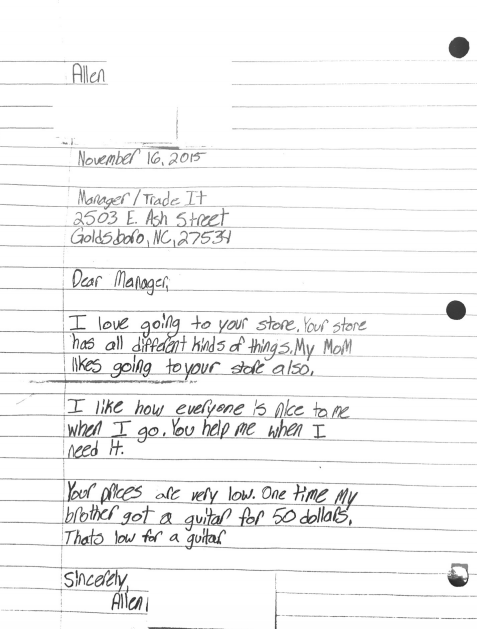 Allen
November 16, 2015
Manager/Trade It
2503 E. Ash Street
Goldsboro, NC, 27534
Dear Manager,
I love going to your store. Your store
has all different kinds of things. My Mom
likes going to your store also.
I like how everyone is nice to me
when I go. You help me when I
need it.
Your prices are very low. One time my
brother got a guitar for 50 dollars.
Thats low for a guitar
Sincerely,
Allen